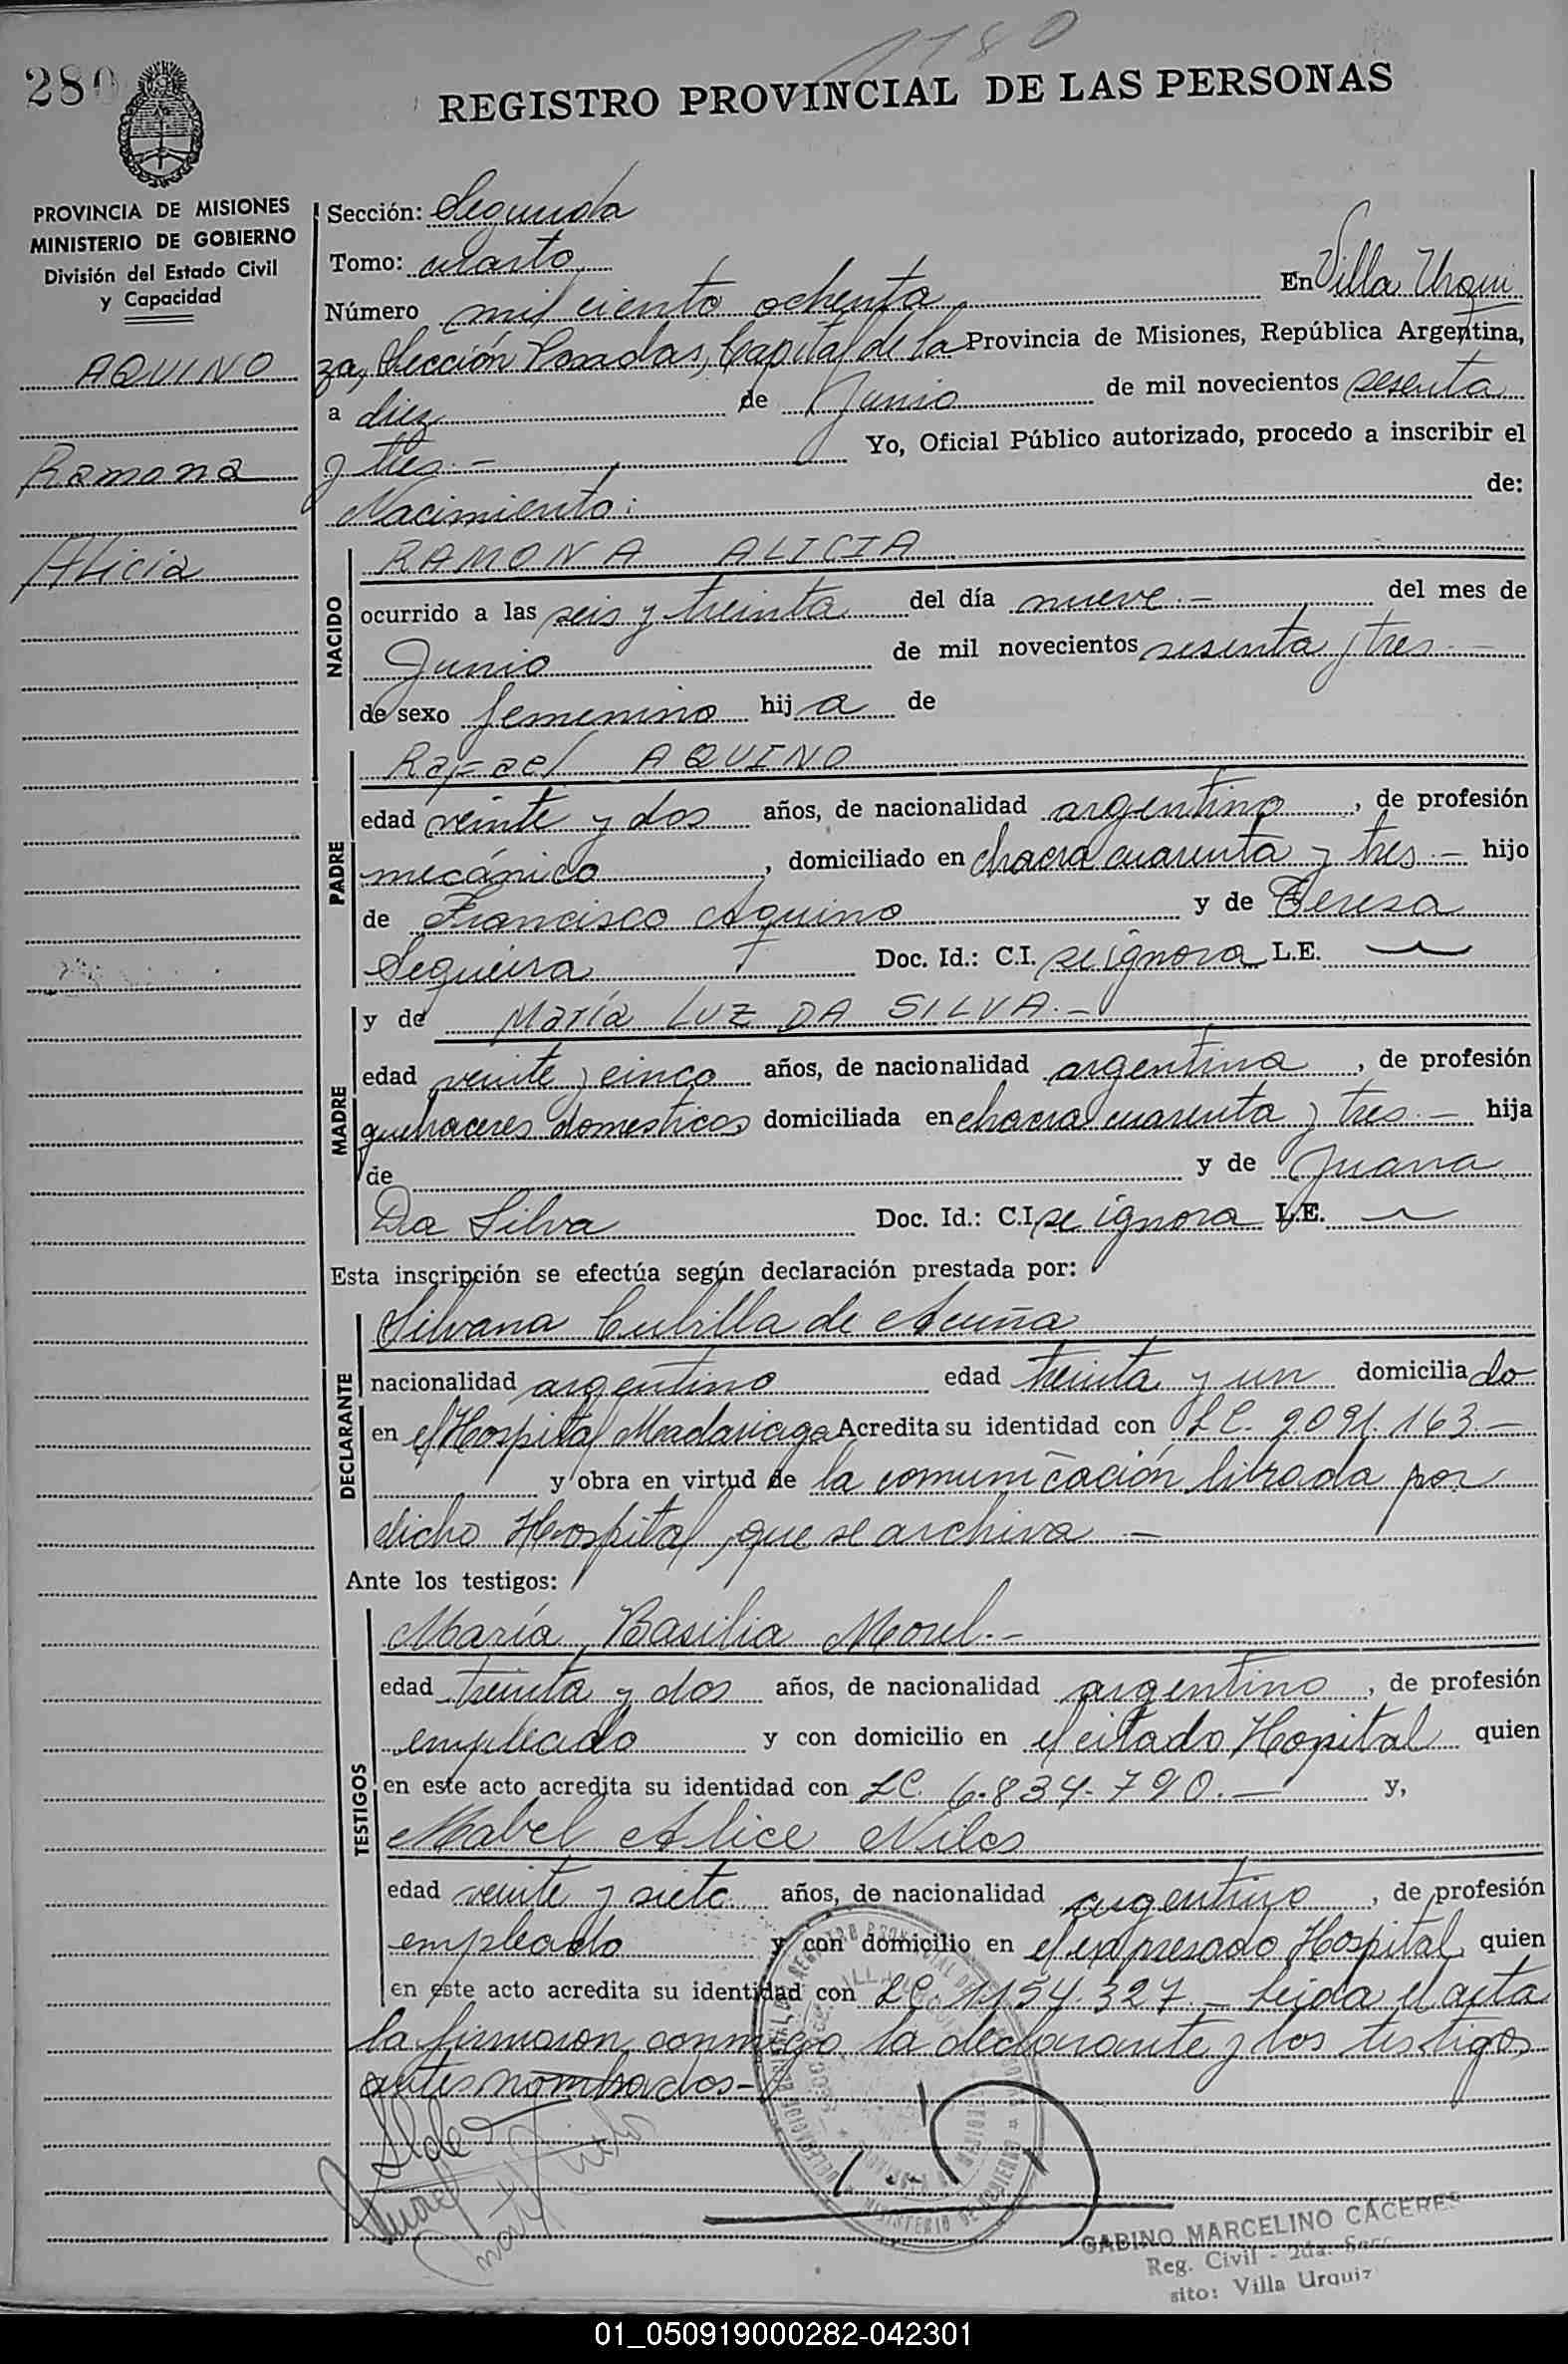 1180
280
REGISTRO PROVINCIAL DE LAS PERSONAS
PROVINCIA DE MISIONES
MINISTERIO DE GOBIERNO
División del Estado Civil
y Capacidad
AQUINO
Ramona
Alicia
Sección: Segunda
Tomo: cuarto
Número mil ciento ochenta En Villa Urqui
za, Sección Posadas, Capital de la Provincia de Misiones, República Argentina,
a diez de Junio de mil novecientos sesenta
y tres.- Yo, Oficial Público autorizado, procedo a inscribir el
Nacimiento: de:
NACIDO
RAMONA ALICIA
ocurrido a las seis y treinta del día nueve.- del mes de
Junio de mil novecientos sesenta y tres.-
de sexo femenino hija de
PADRE
Rafael AQUINO
edad veinte y dos años, de nacionalidad argentino, de profesión
mecánico, domiciliado en chacra cuarenta y tres.- hijo
de Francisco Aquino y de Teresa
Sequeira Doc. Id.: C.I. se ignora L.E.
MADRE
y de María LUZ DA SILVA.-
edad veinte y cinco años, de nacionalidad argentina, de profesión
quehaceres domesticos domiciliada en chacra cuarenta y tres.- hija
de y de Juana
Da Silva Doc. Id.: C.I. se ignora L.E.
Esta inscripción se efectúa según declaración prestada por:
DECLARANTE
Silvana Cubilla de Acuña
nacionalidad argentino edad treinta y un domiciliado
en el Hospital Madariaga Acredita su identidad con L.C. 2.091.163.-
y obra en virtud de la comunicación librada por
dicho Hospital, que se archiva.-
Ante los testigos:
TESTIGOS
María Basilia Morel.-
edad treinta y dos años, de nacionalidad argentino, de profesión
empleado y con domicilio en el citado Hospital quien
en este acto acredita su identidad con L.C. 6.834.790.- y,
Mabel Alice Niles
edad veinte y siete años, de nacionalidad argentino, de profesión
empleado y con domicilio en el expresado Hospital, quien
en este acto acredita su identidad con L.C. 1.154.327.- Leida el acta
la firmaron conmigo la declarante y los testigos
antes nombrados.-
GABINO MARCELINO CACERES
Reg. Civil - 2da. Secc.
sito: Villa Urquiz
01_050919000282-042301